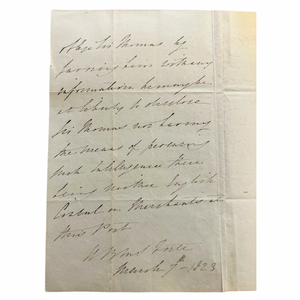 oblige Sir Thomas by
furnishing him with any
information he may be
at liberty to disclose
Sir Thomas not having
the means of procuring
such intelligence there
being neither English
Consul or Merchants at
this Port
March 7th 1823